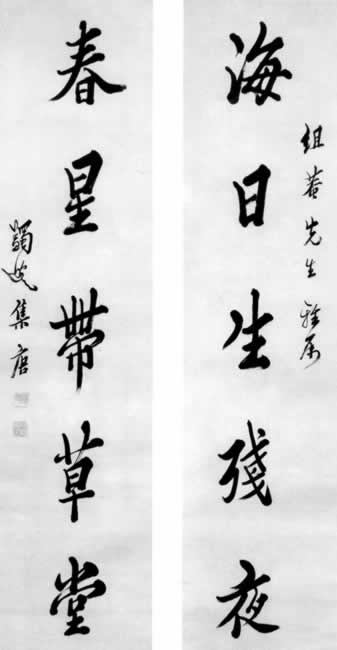 組菴先生雅属
海日生殘夜
春星帶草堂
蠲叟集唐